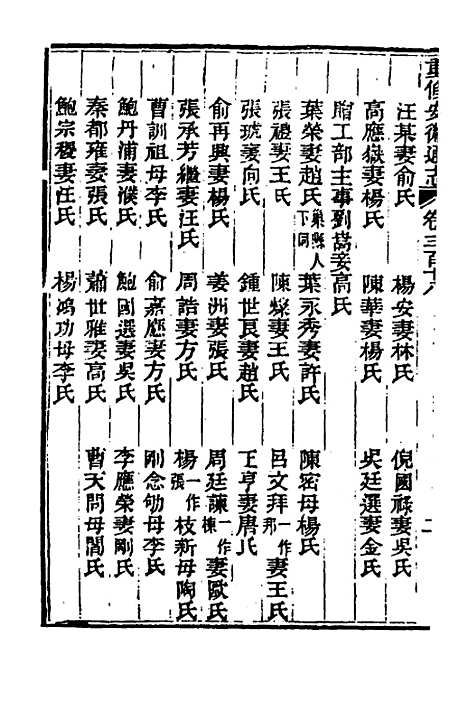 重修安徽通志 卷三百十八 二
汪某妻俞氏 楊安妻林氏 倪國祿妻吳氏
高應嶽妻楊氏 陳華妻楊氏 吳廷選妻金氏
贈工部主事劉嵩妾高氏
葉榮妻趙氏巢縣人下同 葉永秀妻許氏 陳密母楊氏
張禮妻王氏 陳燦妻王氏 呂文拜一作那妻王氏
張琥妻向氏 鍾世良妻趙氏 王亨妻唐氏
俞再興妻楊氏 姜洲妻張氏 周廷諫一作棟妻歐氏
張承芳繼妻汪氏 周誥妻方氏 楊一作張枝新母陶氏
曹訓祖母李氏 俞嘉應妻方氏 剛念劬母李氏
鮑丹浦妻濮氏 鮑國選妻吳氏 李應榮妻剛氏
秦都雍妻張氏 蕭世雅妻高氏 曹天問母閻氏
鮑宗稷妻汪氏 楊鴻功母李氏